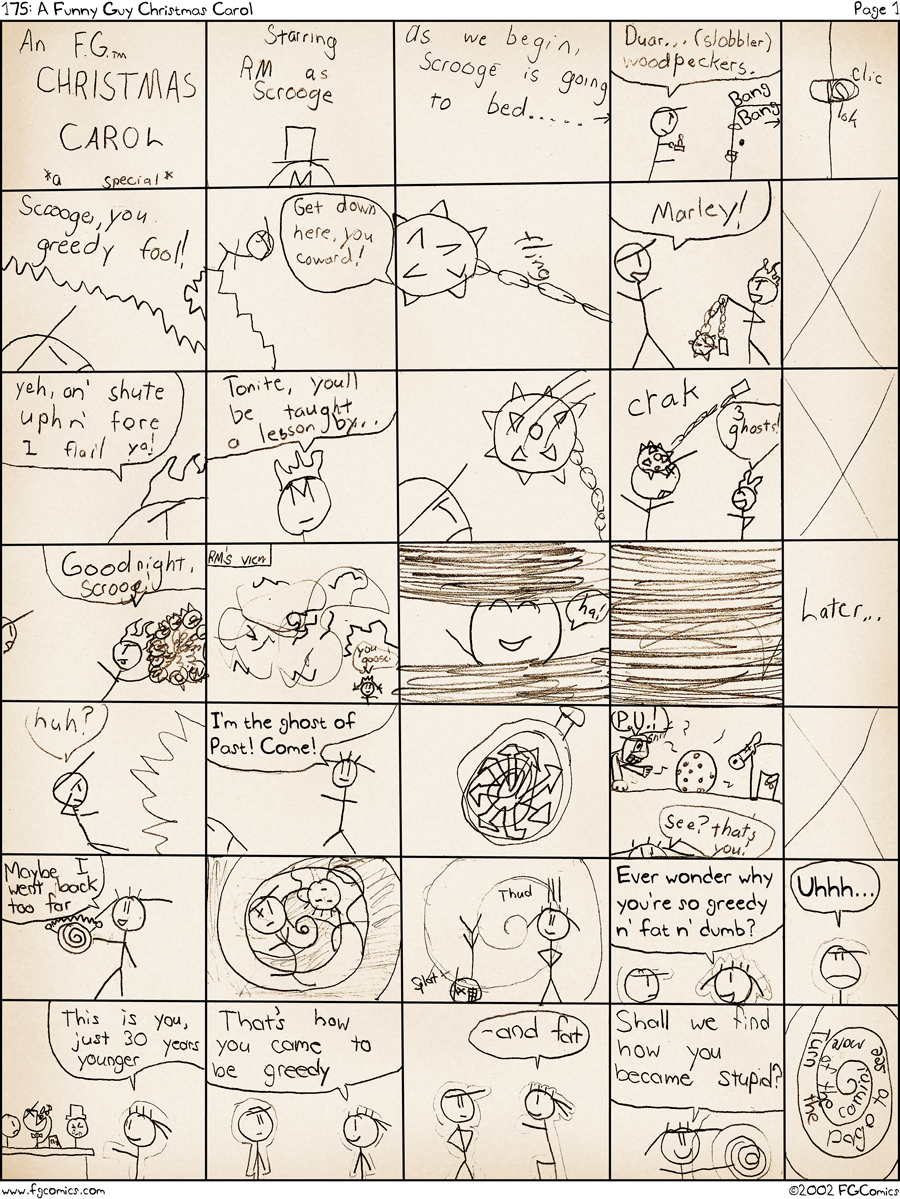 175: A Funny Guy Christmas Carol
Page 1
An F.G.™
CHRISTMAS
CAROL
*a special*
Starring
RM as
Scrooge
As we begin,
Scrooge is going
to bed.....→
Duar... (slobbler)
woodpeckers.
Bang
Bang
Clic
lok
Scrooge, you
greedy fool!
Get down
here, you
coward!
fling
Marley!
yeh, an' shute
uph n' fore
I flail ya!
Tonite, youll
be taught
a lesson by...
crak
3
ghosts!
Goodnight,
Scrooge!
RM's view
you
goose!
ha!
Later...
huh?
I'm the ghost of
Past! Come!
P.U.!
snif
See? thats
you!
Maybe I
went back
too far
Thud
Splat
Ever wonder why
you're so greedy
n' fat n' dumb?
Uhhh...
This is you,
just 30 years
younger
That's how
you came to
be greedy
-and fat
Shall we find
how you
became stupid?
Turn the
page to see
now of the
coming
www.fgcomics.com
©2002 FGComics